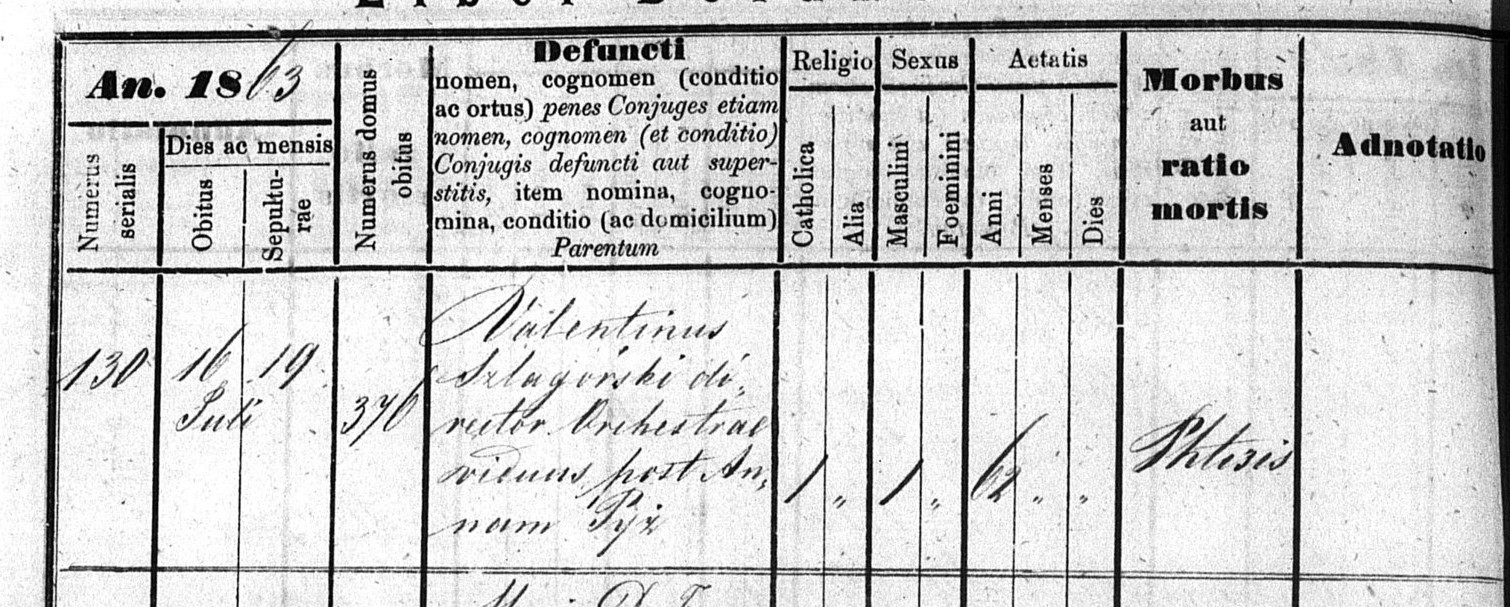 An. 1863
Numerus serialis
Dies ac mensis
Obitus
Sepultu-
rae
Numerus domus
obitus
Defuncti
nomen, cognomen (conditio
ac ortus) penes Conjuges etiam
nomen, cognomen (et conditio)
Conjugis defuncti aut super-
stitis, item nomina, cogno-
mina, conditio (ac domicilium)
Parentum
Religio
Catholica
Alia
Sexus
Masculini
Foeminini
Aetatis
Anni
Menses
Dies
Morbus
aut
ratio
mortis
Adnotatio
130
16 19
Juli
370
Valentinus
Szlagórski di,
rector Orchestrae
viduus post An,
nam Pyż
1 „ 1 „ 62 „ „
Phtisis